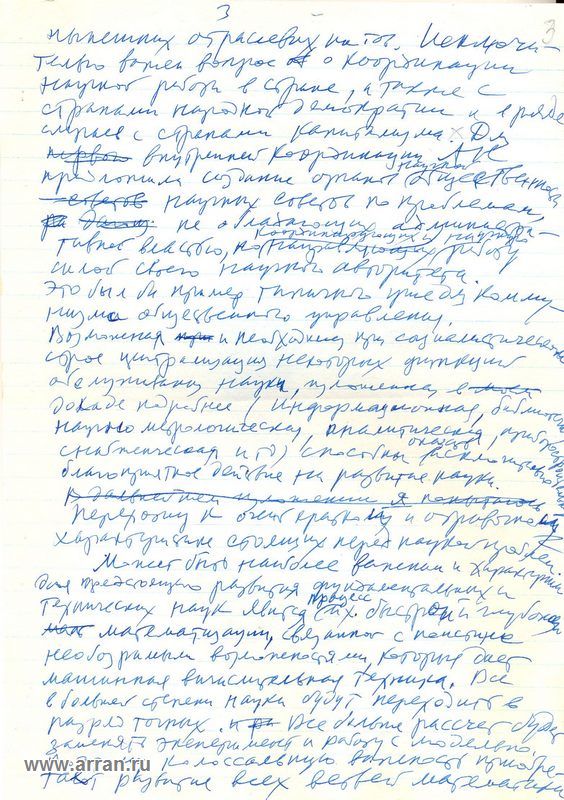 3
3
нынешних отраслевых ин-тов. Исключи-
тельно важен вопрос о координации
научной работы в стране, а также с
странами народной демократии и в ряде
случаев с странами капитализма. Для
первой внутренней координации АН
предложила создание органов научной общественности
советов научных советов по проблемам,
не обладающих администра-
тивной властью, но координирующих и направляющих научную работу
силой своего научного авторитета.
Это был бы пример типичного
низма общественного управления.
Возможная и необходимая при социалистическом
строе централизация некоторых функций
обслуживания науки, изложенная в моем
докладе подробнее (информационная, библиотечная,
научно метрологическая, аналитическая, приборостроительная,
снабженческая и тд) способны оказать исключительно
благоприятное действие на развитие науки.
В дальнейшем изложении я попытаюсь
Перехожу к очень краткой и отрывочной
характеристике стоящих перед наукой проблем.
Может быть наиболее важным и характерным
для предстоящего развития фундаментальных и
технических наук явится процесс их быстрой и глубокой
математизации, связанной с поистине
необозримыми возможностями, которые дает
машинная вычислительная техника. Все
в большей степени науки будут переходить в
разряд точных. Все больше рассчет будет
заменять эксперимент и работу с моделью.
колоссальную важность приобре-
тает развитие всех ветвей математики
www.arran.ru